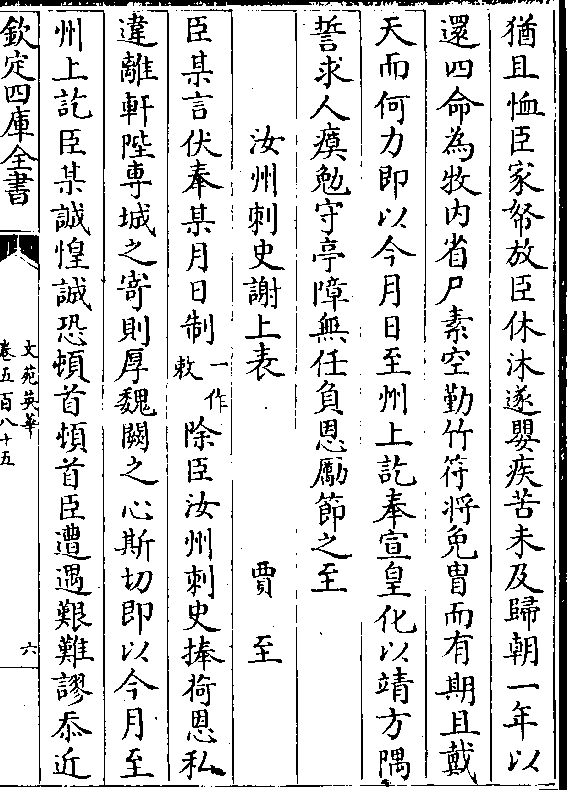 猶且恤臣家帑放臣休沐遂嬰疾苦未及歸朝一年以
還四命為牧内省尸素空勤竹符将免胄而有期且戴
天而何力即以今月日至州上訖奉宣皇化以靖方隅
誓求人瘼勉守亭障無任負恩勵節之至
汝州刺史謝上表 賈至
臣某言伏奉某月日制一作敕除臣汝州刺史捧荷恩私
違離軒陛専城之寄則厚魏闕之心斯切即以今月至
州上訖臣某誠惶誠恐頓首頓首臣遭遇艱難謬忝近
欽定四庫全書
文苑英華
卷五百八十五
六